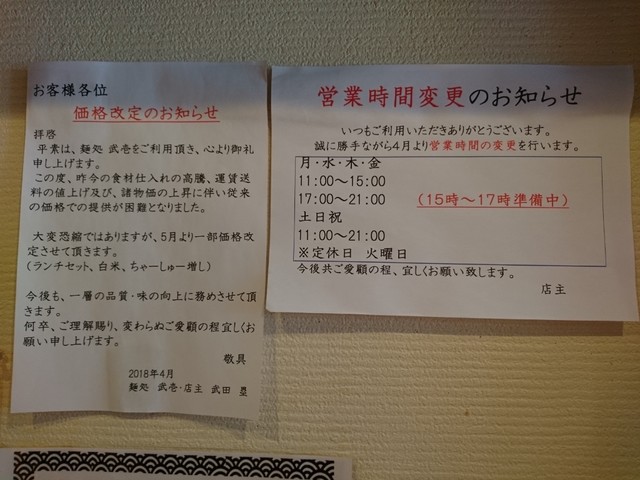 お客様各位
価格改定のお知らせ
拝啓
平素は、麺処 武壱をご利用頂き、心より御礼
申し上げます。
この度、昨今の食材仕入れの高騰、運賃送
料の値上げ及び、諸物価の上昇に伴い従来
の価格での提供が困難となりました。
大変恐縮ではありますが、5月より一部価格改
定させて頂きます。
(ランチセット、白米、ちゃーしゅー増し)
今後も、一層の品質・味の向上に務めさせて頂
きます。
何卒、ご理解賜り、変わらぬご愛顧の程宜しくお
願い申し上げます。
敬具
2018年4月
麺処 武壱・店主 武田 塁
営業時間変更のお知らせ
いつもご利用いただきありがとうございます。
誠に勝手ながら4月より営業時間の変更を行います。
月・水・木・金
11:00～15:00
17:00～21:00 (15時～17時準備中)
土日祝
11:00～21:00
※定休日 火曜日
今後共ご愛顧の程、宜しくお願い致します。
店主